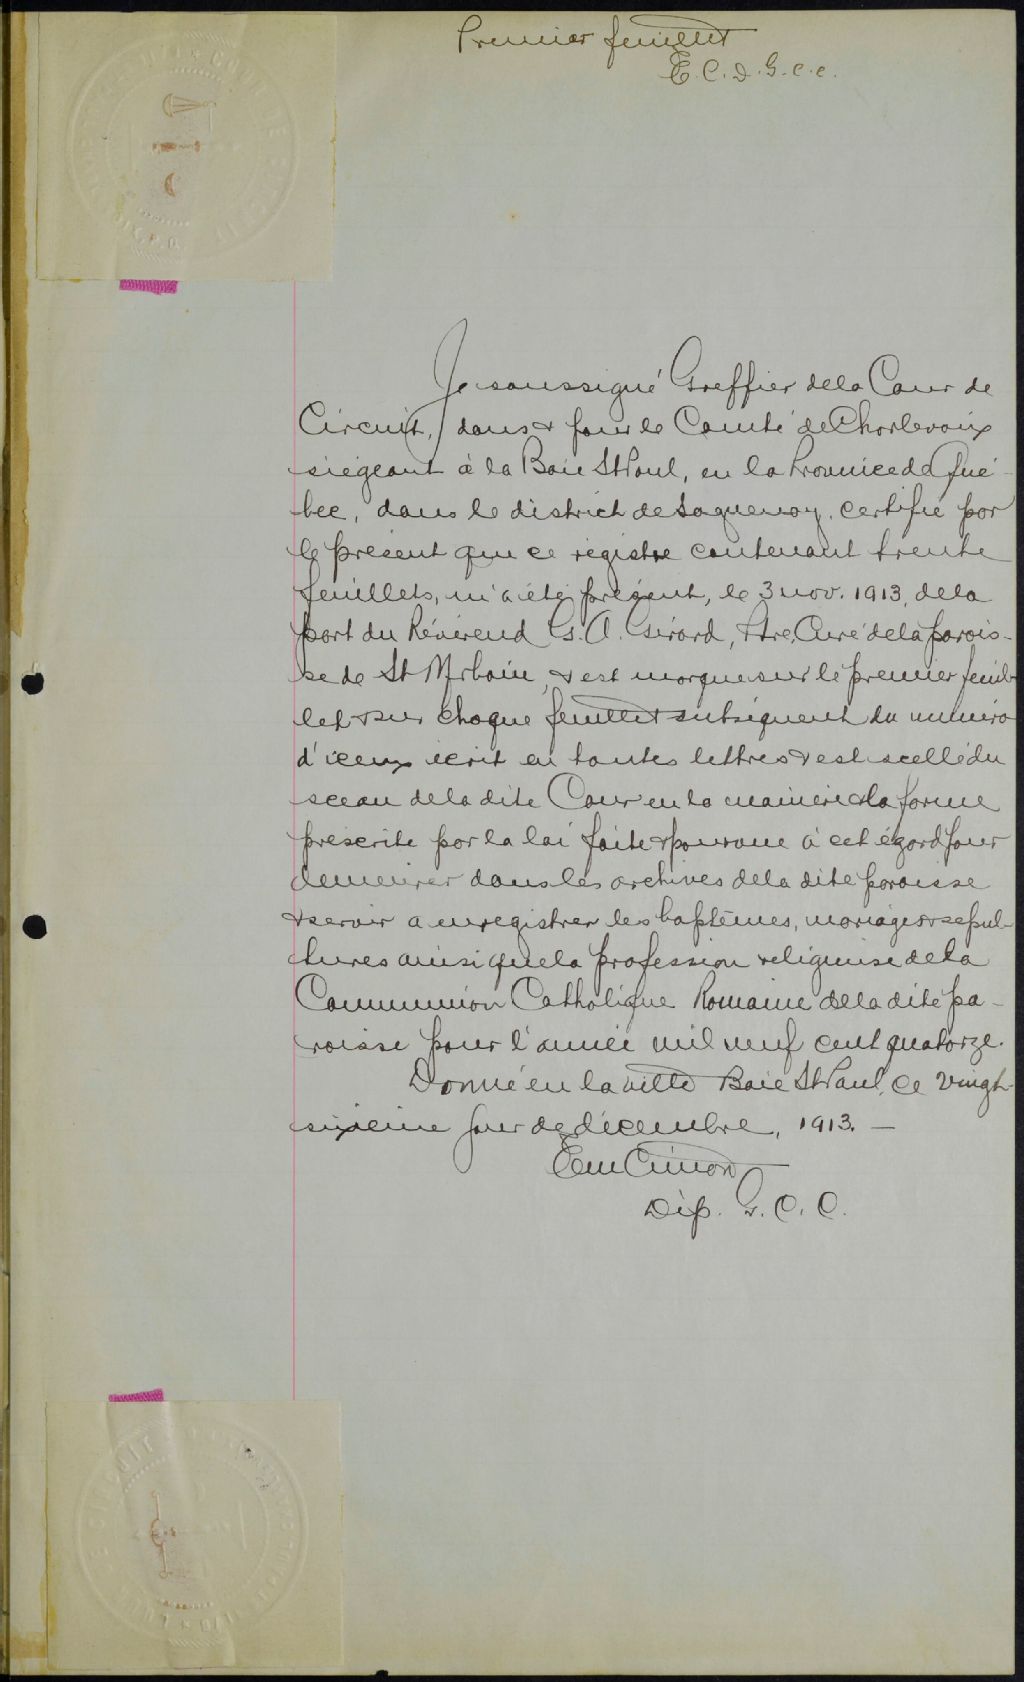 Premier feuillet
E. C. D. G. C. C.
Je soussigné Greffier de la Cour de
Circuit, dans & pour le Comté de Charlevoix
siégeant à la Baie St Paul, en la Province de Qué-
bec, dans le district de Saguenay, certifie par
le présent que ce registre contenant trente
feuillets, m'a été présenté, le 3 nov. 1913, de la
part du Révérend G. A. Girard, Ptre, Curé de la parois-
se de St Urbain, & est marqué sur le premier feuil-
let & sur chaque feuillet subséquent du numéro
d'iceux écrit en toutes lettres & est scellé du
sceau de la dite Cour en la manière & la forme
prescrite par la loi faite & pourvue à cet égard pour
demeurer dans les archives de la dite paroisse
& servir à enregistrer les baptêmes, mariages & sépul-
tures ainsi que la profession religieuse de la
Communion Catholique Romaine de la dite pa-
roisse pour l'année mil neuf cent quatorze.
Donné en la ville Baie St Paul, ce vingt-
sixième jour de décembre, 1913. —
Em Cimon
Dép. G. C. C.